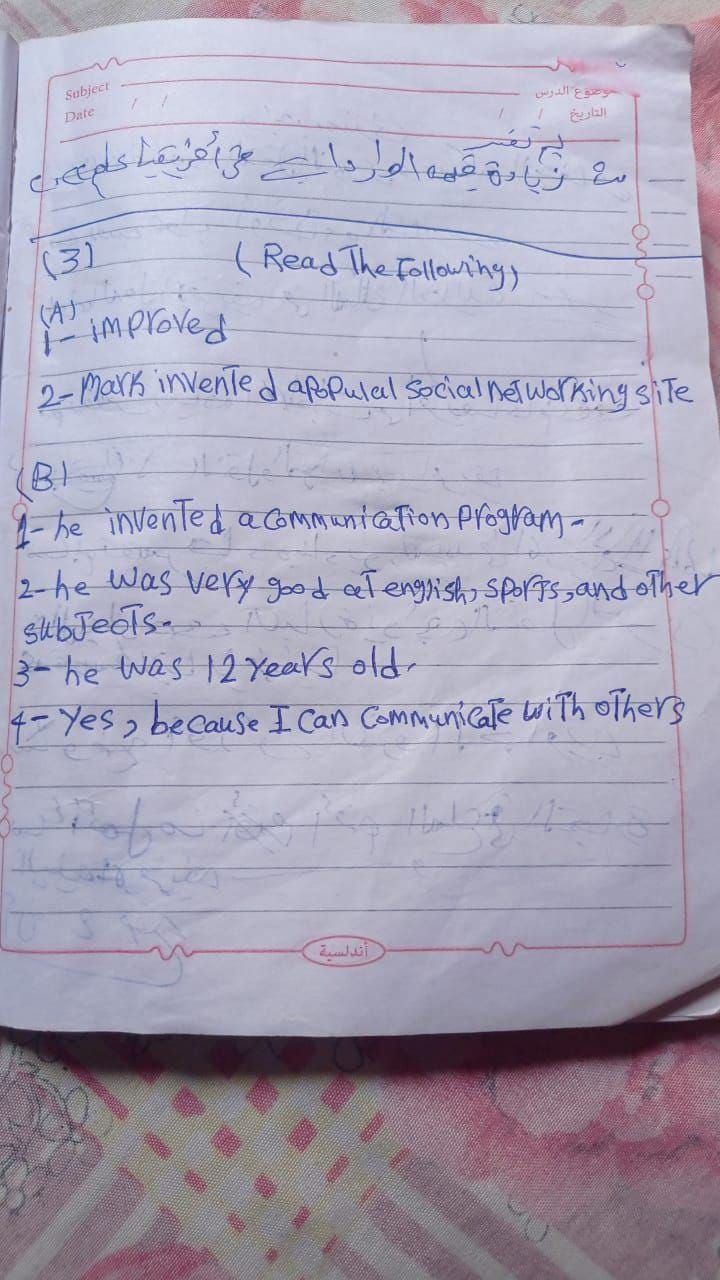 Subject
موضوع الدرس
Date / /
/ / التاريخ
مع زيادة قيمة الواردات
(3) (Read The Following)
(A)
1- improved
2- Mark invented a populal social networking site
(B)
1- he invented a communication program-
2- he was very good at english, sports, and other
subjects-
3- he was 12 years old.
4- Yes, because I can communicate with others
أندلسية